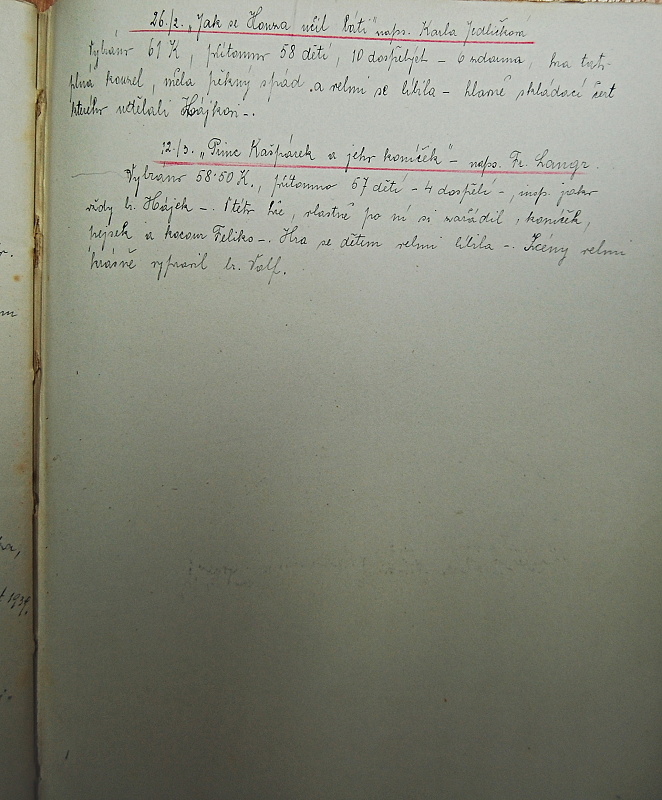 26./2. „Jak se Honza učil báti" naps. Karla Jedličková
Vybráno 61 K, přítomno 58 dětí, 10 dospělých – 6 zdarma, hra
plná kouzel, měla pěkný spád a velmi se líbila – hlavně skládací čert
kterého udělali Hájkovi –.
12./3. „Princ Kašpárek a jeho koníček" – naps. Fr. Langr.
Vybráno 58·50 K., přítomno 67 dětí – 4 dospělí –, insp. jako
vždy br. Hájek –. hře, vlastně po ní si zařádil, koníček,
pejsek a kocour Feliko –. Hra se dětem velmi líbila –. Scény velmi
krásně vypravil br. Volf.
r.
t 1939.